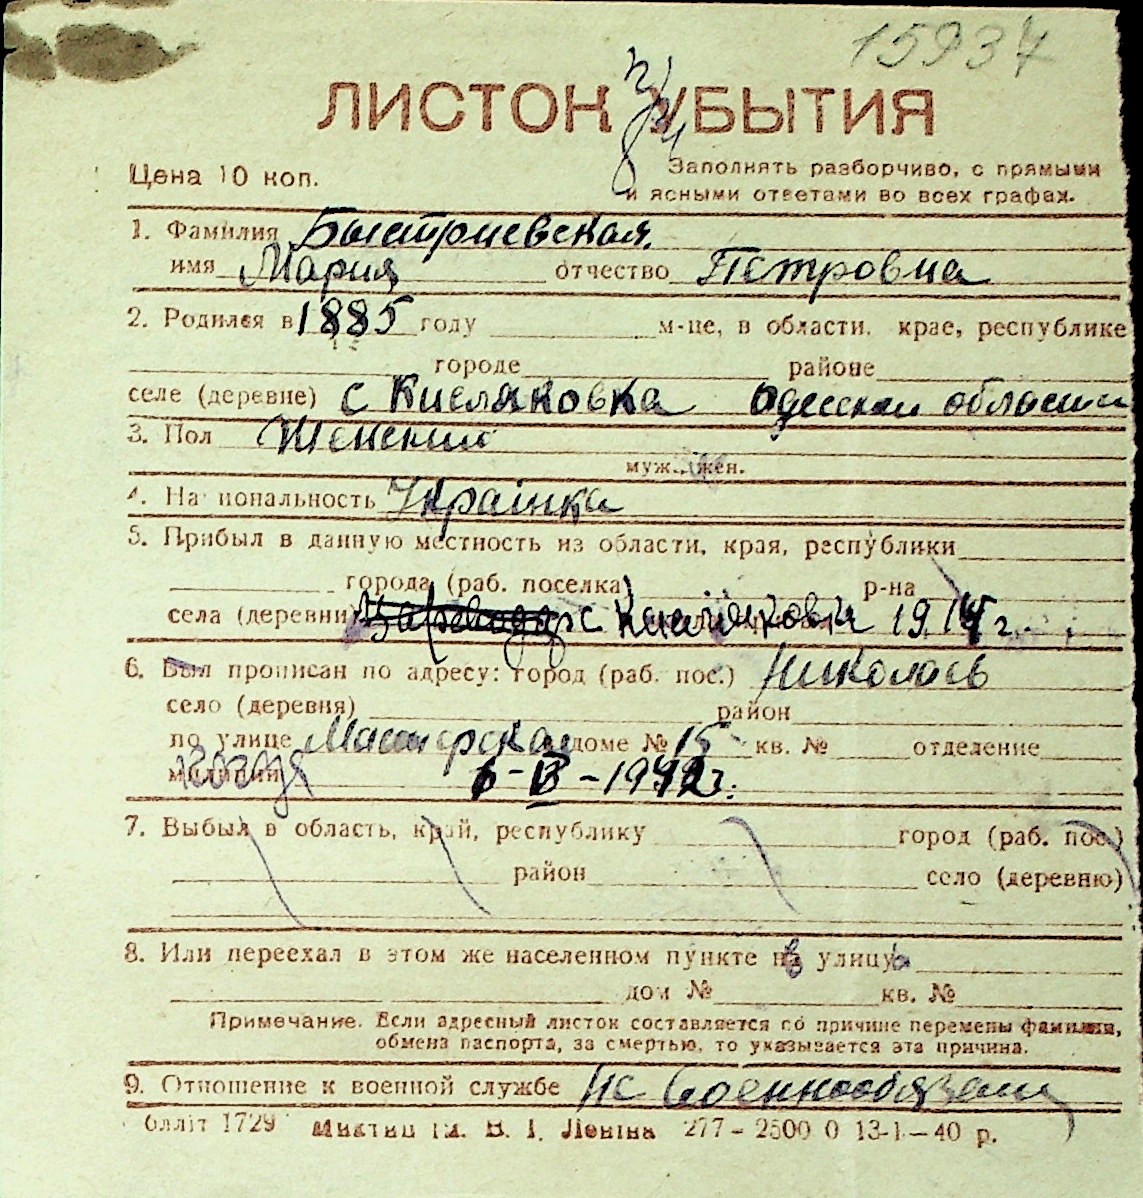 15937
ЛИСТОК УБЫТИЯ
Цена 10 коп.
Заполнять разборчиво, с прямыми
и ясными ответами во всех графах.
1. Фамилия Быстриевская
имя Мария отчество Петровна
2. Родился в 1885 году м-це, в области, крае, республике
городе районе
селе (деревне) с Кисляковка Одесской области
3. Пол Женский
муж. жен.
4. На иональность Українка
5. Прибыл в данную местность из области, края, республики
города (раб. поселка) р-на
села (деревни) с 1914 г.
6. Был прописан по адресу: город (раб. пос.) Николаев
село (деревня) район
по улице Мастерская доме № 15 кв. № отделение
милиции 1942 г.
7. Выбыл в область, край, республику город (раб. пос.)
район село (деревню)
8. Или переехал в этом же населенном пункте на улицу
дом № кв. №
Примечание. Если адресный листок составляется по причине перемены фамилии,
обмена паспорта, за смертью, то указывается эта причина.
9. Отношение к военной службе не военнообязан
блліт 1729 ім. В. І. Леніна 277 – 2500 0 13-1–40 р.